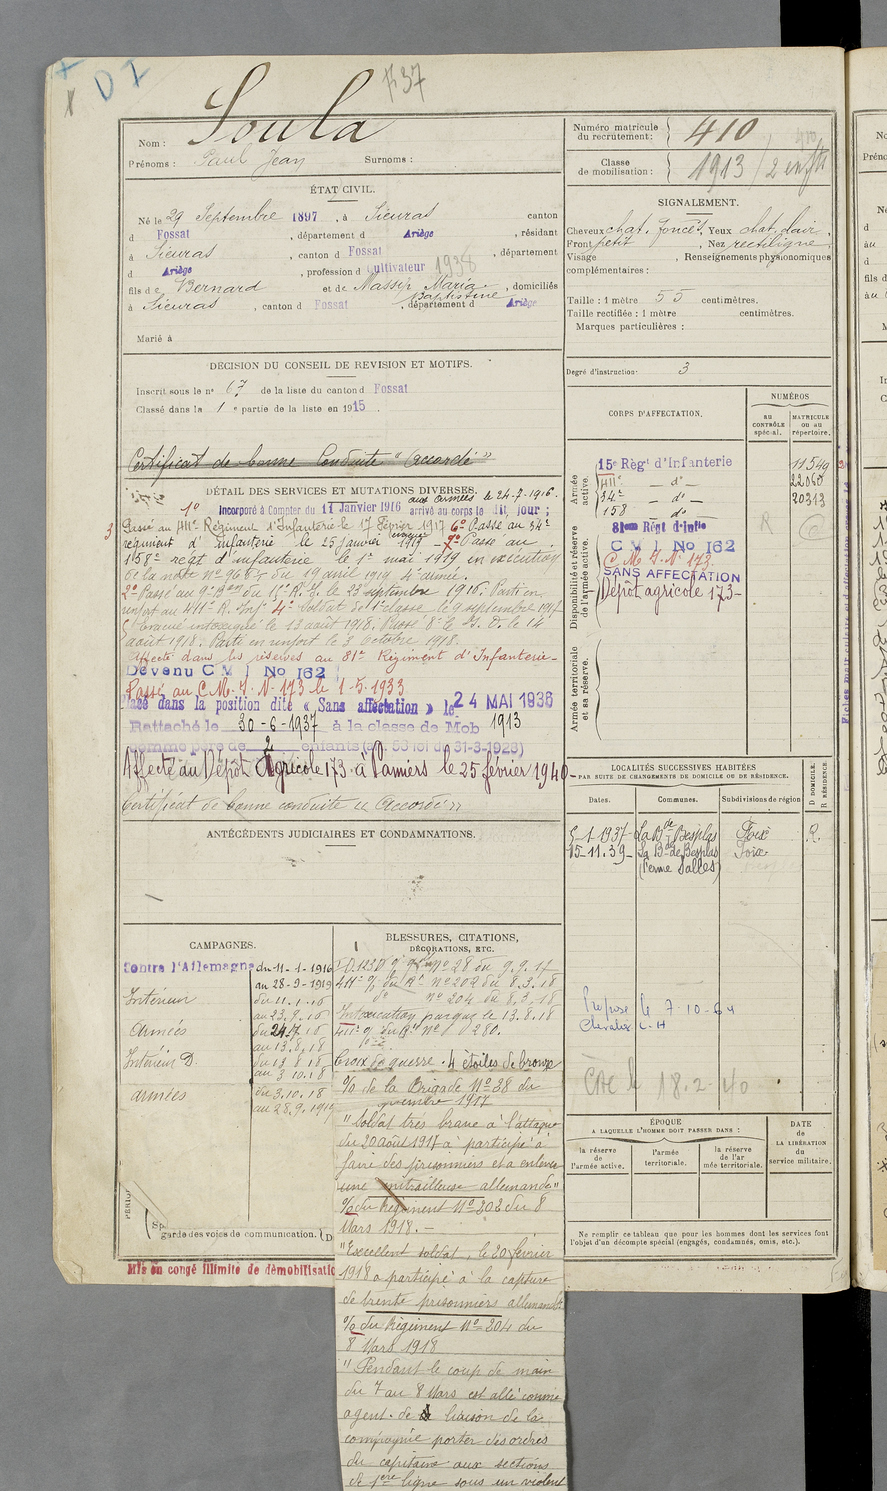 X D I
1337
Nom : Soula
Prénoms : Paul Jean Surnoms :
ÉTAT CIVIL.
Né le 29 Septembre 1897, à Sieuras canton
d Fossat, département d Ariège, résidant
à Sieuras, canton d Fossat, département
d Ariège, profession d Cultivateur 1938
fils de Bernard et de Massip Maria Baptistine, domiciliés
à Sieuras, canton d Fossat, département d Ariège
Marié à
DÉCISION DU CONSEIL DE REVISION ET MOTIFS.
Inscrit sous le n° 67 de la liste du canton d Fossat
Classé dans la 1e partie de la liste en 1915.
Certificat de bonne Conduite "Accordé"
DÉTAIL DES SERVICES ET MUTATIONS DIVERSES.
aux armées le 24-7-1916.
1° Incorporé à Compter du 11 Janvier 1916 arrivé au corps le dit jour ;
3° Passé au 411e Régiment d'Infanterie le 17 Février 1917 6° Passé au 34e
régiment d'infanterie le 25 janvier 1919 - 7° Passé au
158e régt d'infanterie le 1er mai 1919 en exécution
de la note n° 968 du 19 avril 1919 4e armée.
2° Passé au 9e Bon du 15e R.I. le 23 septembre 1916. Parti en
renfort au 411e R. Inf. 4° Soldat de 1e classe le 9 septembre 1917
5° Evacué intoxiqué le 13 août 1918. Passé 8e I. D. le 14
août 1918. Parti en renfort le 3 Octobre 1918.
Affecté dans les réserves au 81e Régiment d'Infanterie-
Devenu C M I No 162
Passé au C.M.I. N° 173 le 1-5-1933
Placé dans la position dite « Sans affectation » le 24 MAI 1936
Rattaché le 30-6-1937 à la classe de Mob 1913
comme père de 2 enfants (art. 58 loi du 31-3-1928)
Affecté au Dépôt Agricole 173 à Pamiers le 25 février 1940-
Certificat de bonne conduite « Accordé »
ANTÉCÉDENTS JUDICIAIRES ET CONDAMNATIONS.
CAMPAGNES.
Contre l'Allemagne du 11-1-1916
au 28-9-1919
Intérieur du 11.1.16
au 23.7.16
Armées du 24.7.16
au 13.8.18
Intérieur D. du 13.8.18
au 3.10.18
armées du 3.10.18
au 28.9.1919
garde des voies de communication.
Mis en congé illimité de démobilisation
BLESSURES, CITATIONS,
DÉCORATIONS, ETC.
N° 28 du 9.9.17
411e R.I. n° 202 du 8.3.18
d° n° 204 du 8.3.18
Intoxication par gaz le 13.8.18
N° 280.
Croix de guerre. 4 étoiles de bronze
O/ de la Brigade N° 28 du
septembre 1917
"Soldat très brave à l'attaque
du 20 août 1917 a participé à
faire des prisonniers et a enlevé
une mitrailleuse allemande"
O/ du Régiment N° 202 du 8
Mars 1918. -
"Excellent soldat, le 20 février
1918 a participé à la capture
de trente prisonniers allemands
O/ du Régiment N° 204 du
8 Mars 1918
"Pendant le coup de main
du 7 au 8 Mars est allé comme
agent de liaison de la
compagnie porter des ordres
du capitaine aux sections
de 1ère ligne sous un violent
Numéro matricule
du recrutement : 410
Classe
de mobilisation : 1913 / 2 enfts
SIGNALEMENT.
Cheveux chat. foncés, Yeux chat. clair,
Front petit, Nez rectiligne
Visage , Renseignements physionomiques
complémentaires :
Taille : 1 mètre 55 centimètres.
Taille rectifiée : 1 mètre centimètres.
Marques particulières :
Degré d'instruction : 3
CORPS D'AFFECTATION.
NUMÉROS
AU CONTRÔLE spécial.
MATRICULE ou au répertoire.
Armée active.
15e Régt d'Infanterie 11549
411e - d° - 22060
34e - d° - 20313
158 - d° -
Disponibilité et réserve de l'armée active.
81eme Régt d'Inftie
C M I No 162
C. M. I. N° 173.
SANS AFFECTATION
Dépôt agricole 173-
Armée territoriale et sa réserve.
LOCALITÉS SUCCESSIVES HABITÉES
PAR SUITE DE CHANGEMENTS DE DOMICILE OU DE RÉSIDENCE.
Dates. Communes. Subdivisions de région D DOMICILE. R RÉSIDENCE.
5-1-1937- La Bde Besplas Foix R.
15-11.39- La Bde de Besplas Foix
(Ferme Salles)
Proposé le 7-10-64
Chevalier L.H
18.2.40
ÉPOQUE
A LAQUELLE L'HOMME DOIT PASSER DANS :
la réserve de l'armée active.
l'armée territoriale.
la réserve de l'armée territoriale.
DATE de LA LIBÉRATION du service militaire.
Ne remplir ce tableau que pour les hommes dont les services font
l'objet d'un décompte spécial (engagés, condamnés, omis, etc.).